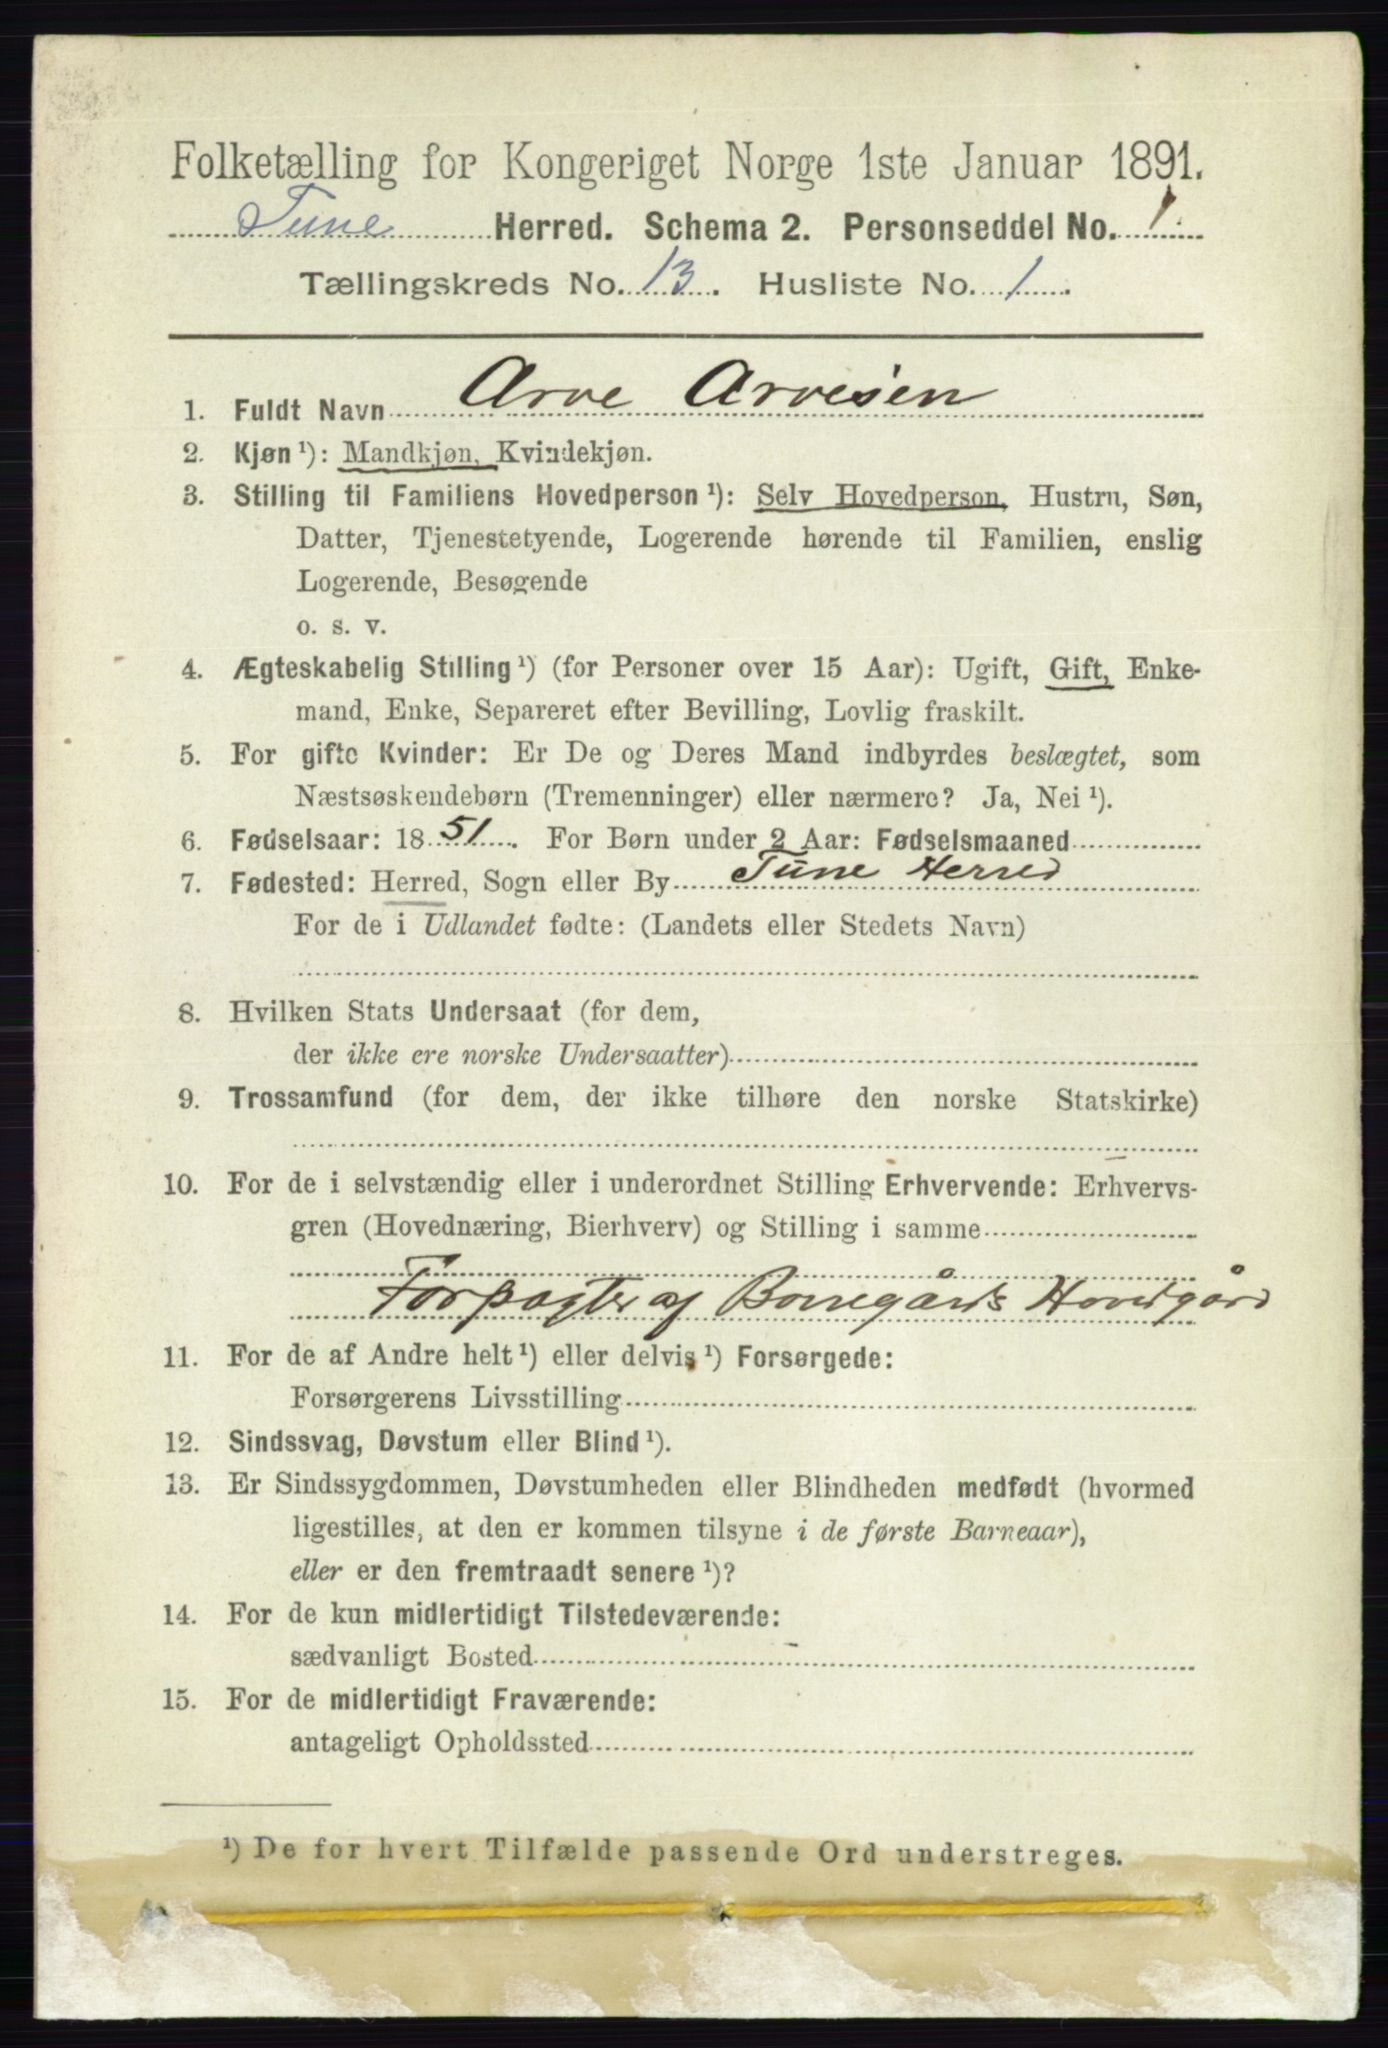 Folketælling for Kongeriget Norge 1ste Januar 1891.
Tune Herred. Schema 2. Personseddel No. 1.
Tællingskreds No. 13. Husliste No. 1.
1. Fuldt Navn Arve Arvesen
2. Kjøn ¹): Mandkjøn, Kvindekjøn.
3. Stilling til Familiens Hovedperson ¹): Selv Hovedperson, Hustru, Søn,
Datter, Tjenestetyende, Logerende hørende til Familien, enslig
Logerende, Besøgende
o. s. v.
4. Ægteskabelig Stilling ¹) (for Personer over 15 Aar): Ugift, Gift, Enke-
mand, Enke, Separeret efter Bevilling, Lovlig fraskilt.
5. For gifte Kvinder: Er De og Deres Mand indbyrdes beslægtet, som
Næstsøskendebørn (Tremenninger) eller nærmere? Ja, Nei ¹).
6. Fødselsaar: 1851. For Børn under 2 Aar: Fødselsmaaned
7. Fødested: Herred, Sogn eller By Tune Herred
For de i Udlandet fødte: (Landets eller Stedets Navn)
8. Hvilken Stats Undersaat (for dem,
der ikke ere norske Undersaatter)
9. Trossamfund (for dem, der ikke tilhøre den norske Statskirke)
10. For de i selvstændig eller i underordnet Stilling Erhvervende: Erhvervs-
gren (Hovednæring, Bierhverv) og Stilling i samme
Forpagter af Borregårds Hovedgård
11. For de af Andre helt ¹) eller delvis ¹) Forsørgede:
Forsørgerens Livsstilling
12. Sindssvag, Døvstum eller Blind ¹).
13. Er Sindssygdommen, Døvstumheden eller Blindheden medfødt (hvormed
ligestilles, at den er kommen tilsyne i de første Barneaar),
eller er den fremtraadt senere ¹)?
14. For de kun midlertidigt Tilstedeværende:
sædvanligt Bosted
15. For de midlertidigt Fraværende:
antageligt Opholdssted
¹) De for hvert Tilfælde passende Ord understreges.